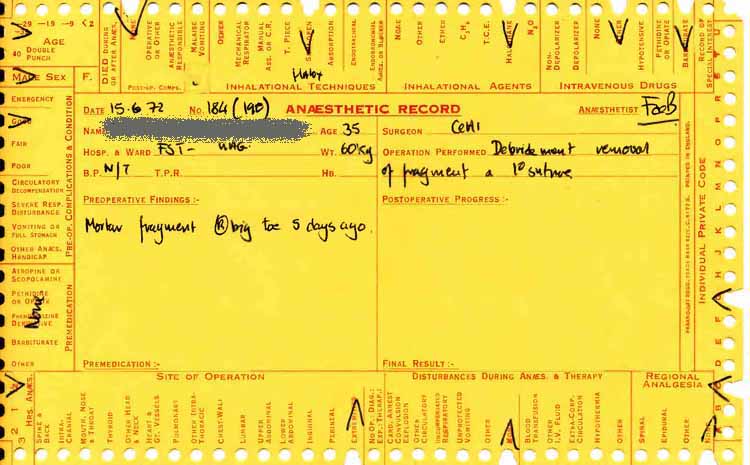 -29 -19 -9 <2
40 AGE
DOUBLE PUNCH
MALE SEX F.
DIED DURING OR AFTER ANÆS.
NONE
OPERATIVE OR OTHER
ANÆSTHETIC RESPONSIBLE
MALAISE VOMITING
OTHER
MECHANICAL RESPIRATOR
MANUAL ASS. OR C.R.
T. PIECE
ABSORPTION
ENDOTRACHEAL
NONE
OTHER
ETHER
C₃H₆
T.C.E.
HALOTHANE
N₂O
NON-DEPOLARIZER
DEPOLARIZER
NONE
OTHER
HYPOTENSIVE
PETHIDINE OR OPIATE
BARBITURATE
RECORD OF SPECIAL INTEREST
POST-OP. COMPS.
INHALATIONAL TECHNIQUES
INHALATIONAL AGENTS
INTRAVENOUS DRUGS
Halox
DATE 15.6.72 No. 184 (190) ANÆSTHETIC RECORD ANÆSTHETIST FaoB
NAME AGE 35 SURGEON
HOSP. & WARD FST - WT. 60Kg OPERATION PERFORMED Debridement removal
B.P. N/T T.P.R. HB. of fragment a 1º suture
PREOPERATIVE FINDINGS :- POSTOPERATIVE PROGRESS :-
Mortar fragment Ⓡ big toe 5 days ago.
PREMEDICATION :- FINAL RESULT :-
EMERGENCY
GOOD
FAIR
POOR
CIRCULATORY DECOMPENSATION
SEVERE RESP. DISTURBANCE
VOMITING OR FULL STOMACH
OTHER ANÆS. HANDICAP
PRE-OP. COMPLICATIONS & CONDITION
ATROPINE OR SCOPOLAMINE
PETHIDINE OR OPIATE
None
BARBITURATE
OTHER
PREMEDICATION
INDIVIDUAL PRIVATE CODE
PRINTED IN ENGLAND.
SITE OF OPERATION
DISTURBANCES DURING ANÆS. & THERAPY
REGIONAL ANALGESIA
HRS. ANÆS.
SPINE & BACK
INTRA-CRANIAL
MOUTH, NOSE & THROAT
THYROID
OTHER HEAD & NECK
HEART & GT. VESSELS
PULMONARY
OTHER INTRA-THORACIC
CHEST-WALL
LUMBAR
UPPER ABDOMINAL
LOWER ABDOMINAL
INGUINAL
PERINEAL
NO OP.: DIAG.: EXP.: THERAP.:
CARD. ARREST CONVULSION EXPLOSION
OTHER CIRCULATORY
UNCOMPENSATED RESPIRATORY
UNPROTECTED VOMITING
OTHER
BLOOD TRANSFUSION
OTHER I.V. FLUID
EXTRA-CORP. CIRCULATION
HYPOTHERMIA
OTHER
SPINAL
EPIDURAL
OTHER